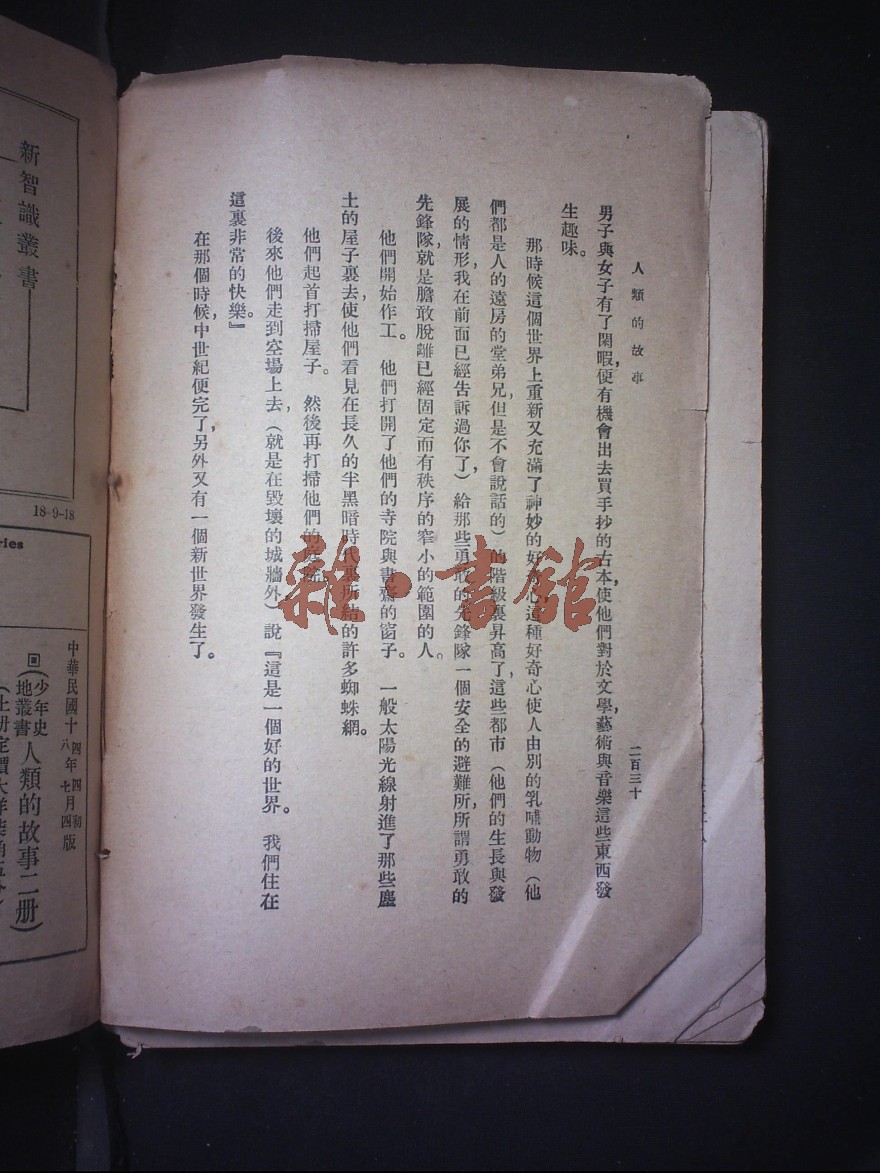 人類的故事
二百三十
男子與女子有了閑暇，便有機會出去買手抄的古本，使他們對於文學，藝術與音樂這些東西發
生趣味。
那時候這個世界上重新又充滿了神妙的好奇心這種好奇心使人由別的乳哺動物（他
們都是人的遠房的堂弟兄，但是不會說話的）的階級裏昇高了，這些都市（他們的生長與發
展的情形，我在前面已經告訴過你了）給那些勇敢的先鋒隊一個安全的避難所，所謂勇敢的
先鋒隊，就是膽敢脫離已經固定而有秩序的窄小的範圍的人。
他們開始作工。他們打開了他們的寺院與書齋的窗子。一般太陽光線射進了那些塵
土的屋子裏去，使他們看見在長久的半黑暗時代裏所結的許多蜘蛛網。
他們起首打掃屋子。然後再打掃他們的
後來他們走到空場上去，（就是在毀壞的城牆外）說『這是一個好的世界。我們住在
這裏非常的快樂。』
在那個時候，中世紀便完了，另外又有一個新世界發生了。
雜·書館
新智識叢書
18-9-18
ries
中華民國十四年四月初版
十八年七月四版
回（少年史地叢書人類的故事二册）
（上册定價大洋